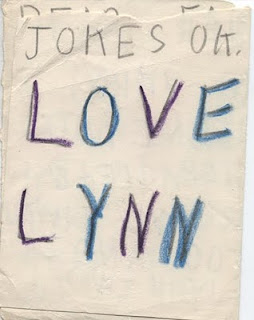 JOKES OK.
LOVE
LYNN